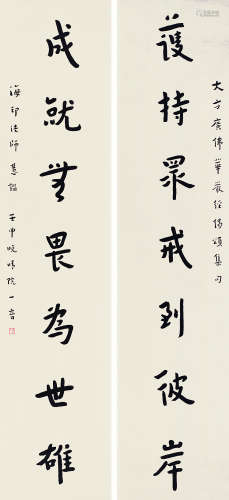 大方廣佛華嚴經偈頌集句
護持眾戒到彼岸
成就無畏為世雄
海印法師慧鑑 壬申晚晴院一音